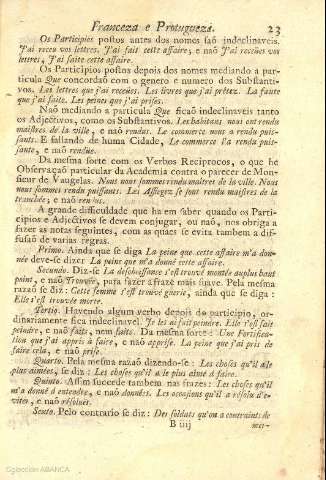 Franceza e Portugueza. 23
Os Participios postos antes dos nomes saõ indeclinaveis.
J'ai receu vos lettres. J'ai fait cette affaire; e naõ J'ai receües vos
lettres, J'ai faite cette affaire.
Os Participios postos depois dos nomes mediando a par-
ticula Que concordaõ com o genero e numero dos Substanti-
vos. Les lettres que j'ai receües. Les livres que j'ai prétez. La faute
que j'ai faite. Les peines que j'ai prises.
Naõ mediando a particula Que ficaõ indeclinaveis tanto
os Adjectivos, como os Substantivos. Les habitans nous ont rendu
maistres de la ville, e naõ rendus. Le commerce nous a rendu puis-
sants. E fallando de huma Cidade, Le commerce l'a rendu puis-
sante, e naõ rendue.
Da mesma sorte com os Verbos Reciprocos, o que he
Observaçaõ particular da Academia contra o parecer de Mon-
sieur de Vaugelas. Nous nous sommes rendu maîtres de la ville. Nous
nous sommes rendu puissants. Les Assiegez se sont rendu maistres de la
tranchée; e naõ rendus.
A grande difficuldade que ha em saber quando os Parti-
cipios e Adjectivos se devem conjugar, ou naõ, nos obriga a
fazer as notas seguintes, com as quaes se evita tambem a dif-
fusaõ de varias regras.
Primo. Ainda que se diga La peine que cette affaire m'a don-
née deve-se dizer La peine que m'a donné cette affaire.
Secundo. Diz-se La desobeissance s'est trouvé montée au plus haut
point, e naõ Trouvée, para fazer a fraze mais suave. Pela mesma
razaõ se diz: Cette femme s'est trouvé guerie, ainda que se diga:
Elle s'est trouvée morte.
Tertio. Havendo algum verbo depois do participio, or-
dinariamente fica indeclinavel. Je les ai fait peindre. Elle s'est fait
peindre, e naõ faits, nem faite. Da mesma sorte: Une Fortifica-
tion que j'ai appris à faire, e naõ apprise. La peine que j'ai pris de
faire cela, e naõ prise.
Quarto. Pela mesma razaõ dizendo-se: Les choses qu'il a le
plus aimées, se diz: Les choses qu'il a le plus aimé à faire.
Quinto. Assim succede tambem nas frazes: Les choses qu'il
m'a donné à entendre, e naõ données. Les occasions qu'il a résolu d'e-
viter, e naõ résolües.
Sexto. Pelo contrario se diz: Des soldats qu'on a contraints de
B iiij mar-
Colección ABANCA